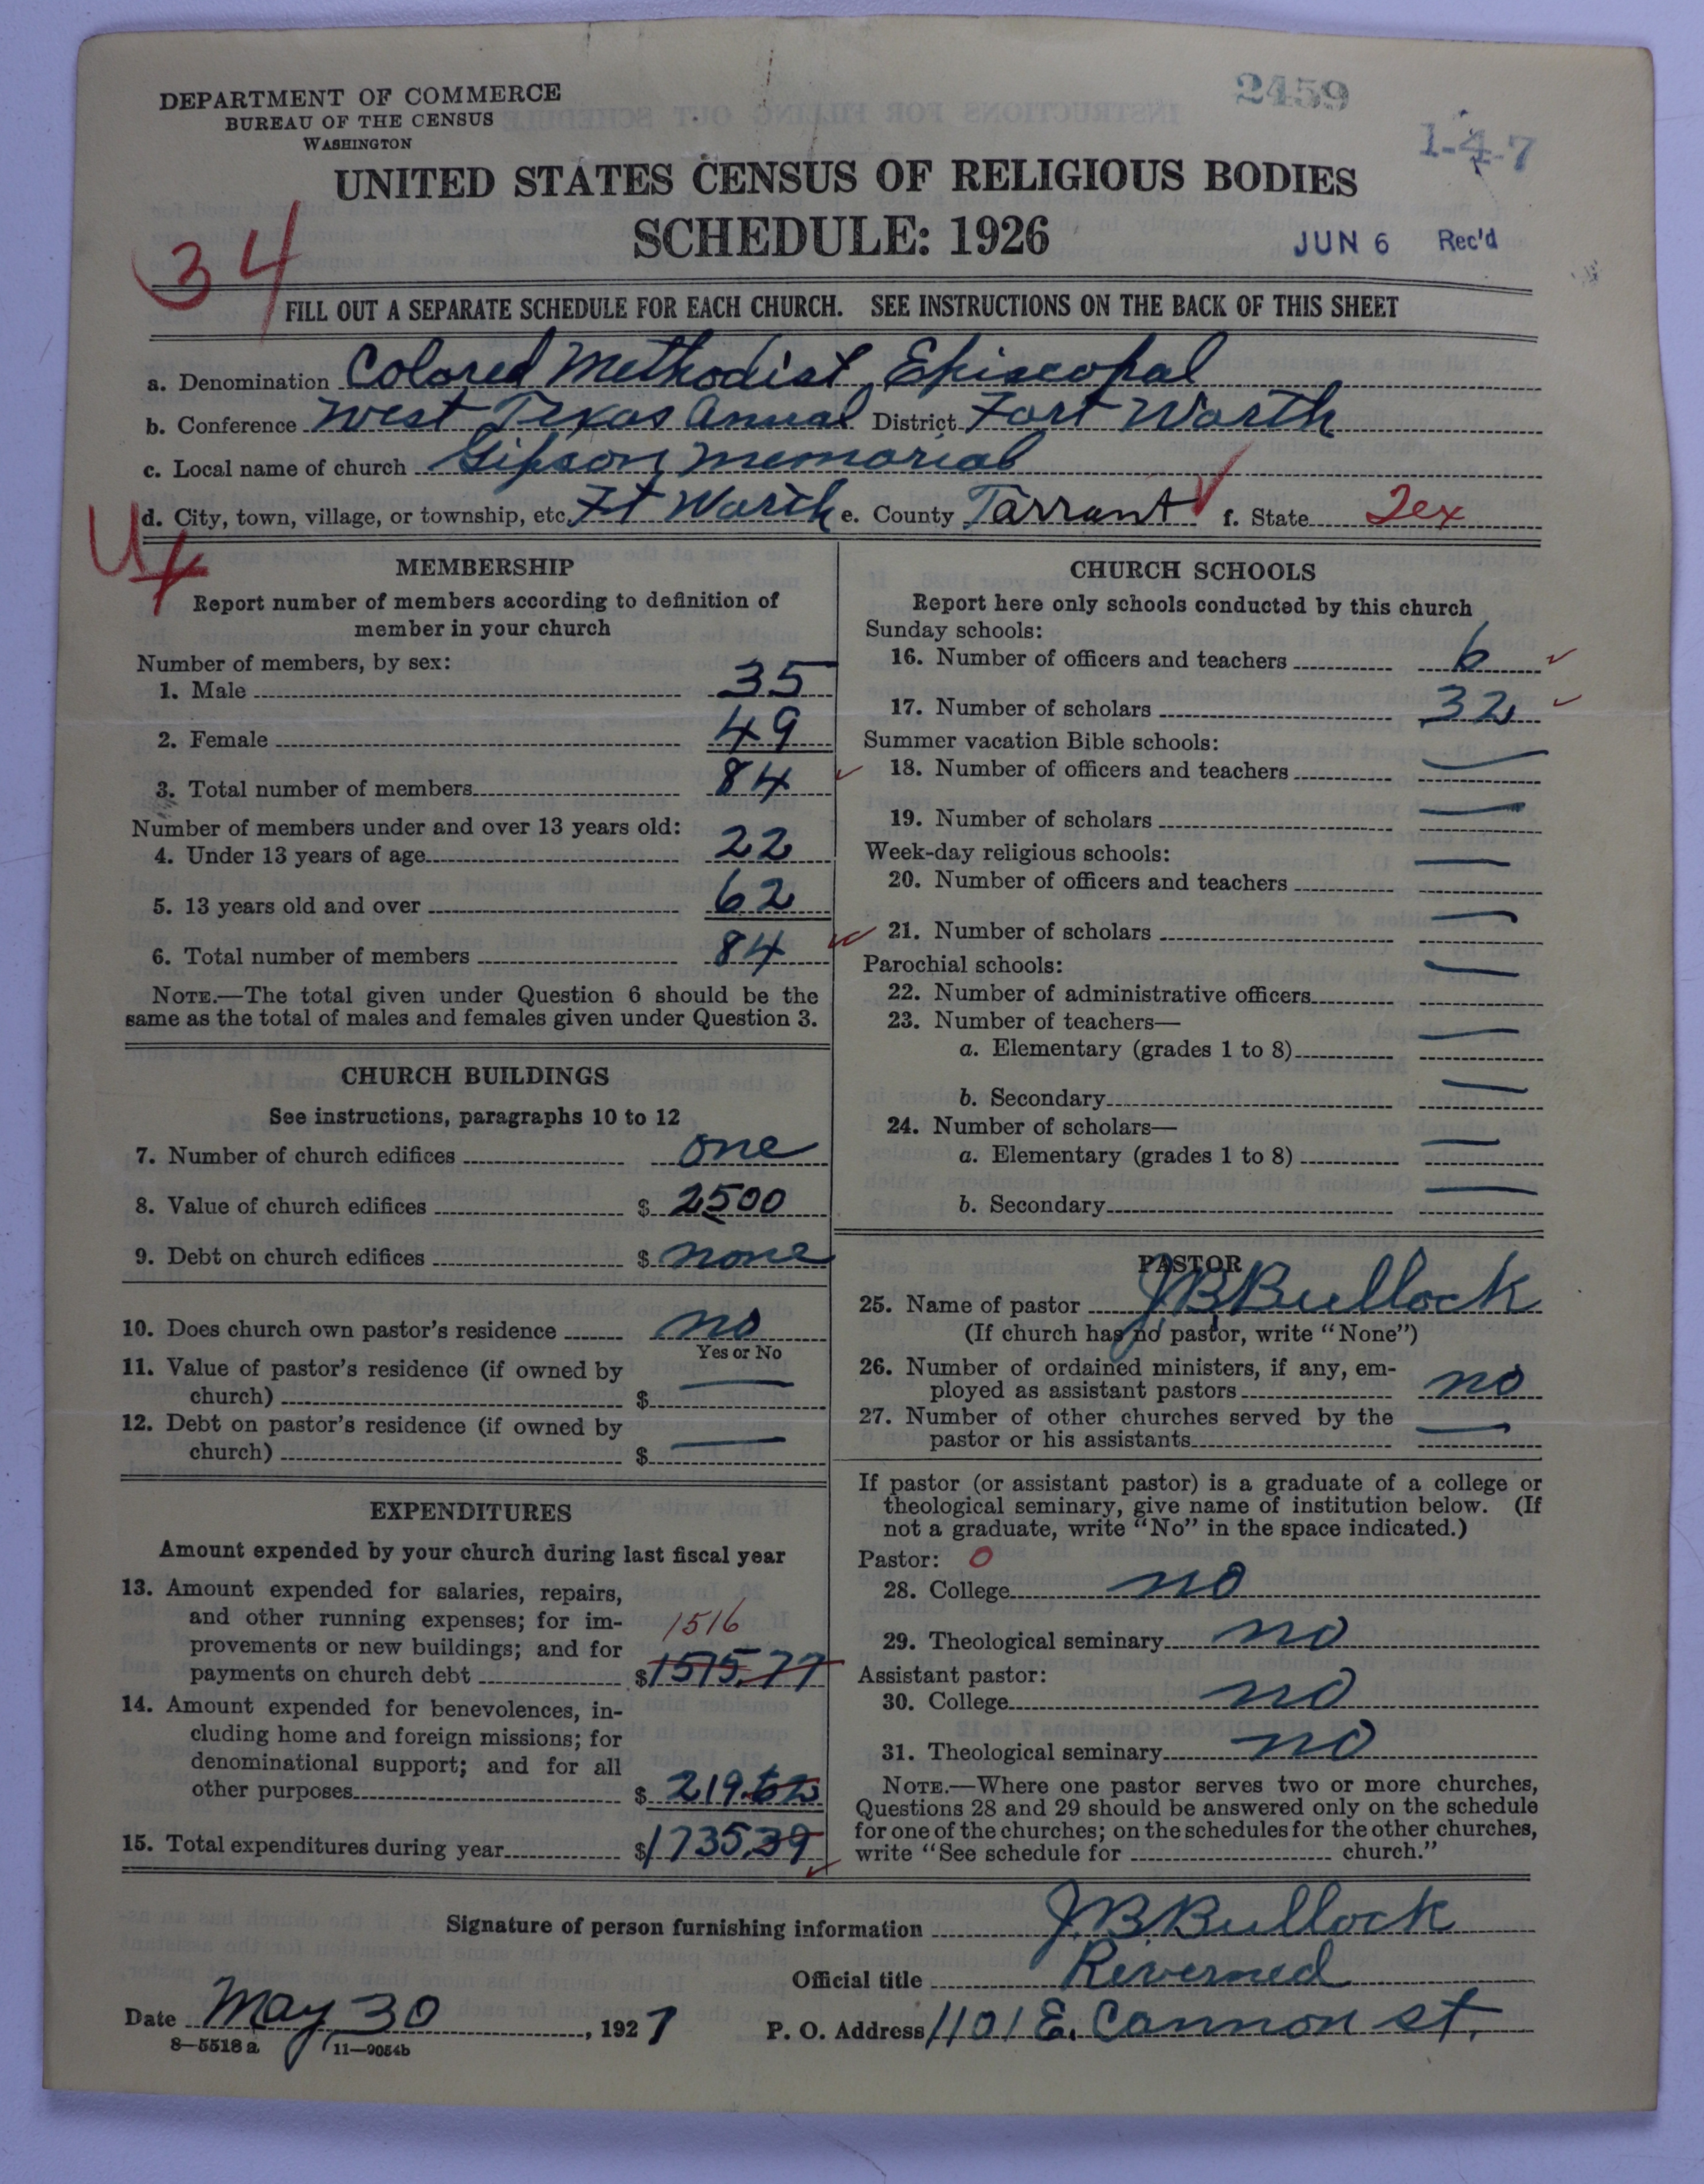 DEPARTMENT OF COMMERCE
BUREAU OF THE CENSUS
WASHINGTON
2459
1-4-7
UNITED STATES CENSUS OF RELIGIOUS BODIES
SCHEDULE: 1926
JUN 6 Rec'd
34
FILL OUT A SEPARATE SCHEDULE FOR EACH CHURCH. SEE INSTRUCTIONS ON THE BACK OF THIS SHEET
a. Denomination Colored Methodist Episcopal
b. Conference West Texas Annual District Fort Worth
c. Local name of church Gipson Memorial
d. City, town, village, or township, etc. Ft Worth e. County Tarrant f. State Tex
U
MEMBERSHIP
Report number of members according to definition of
member in your church
Number of members, by sex:
1. Male 35
2. Female 49
3. Total number of members 84
Number of members under and over 13 years old:
4. Under 13 years of age 22
5. 13 years old and over 62
6. Total number of members 84
NOTE.—The total given under Question 6 should be the
same as the total of males and females given under Question 3.
CHURCH BUILDINGS
See instructions, paragraphs 10 to 12
7. Number of church edifices one
8. Value of church edifices $ 2500
9. Debt on church edifices $ none
10. Does church own pastor's residence no
Yes or No
11. Value of pastor's residence (if owned by
church) $ —
12. Debt on pastor's residence (if owned by
church) $ —
EXPENDITURES
Amount expended by your church during last fiscal year
13. Amount expended for salaries, repairs,
and other running expenses; for im-
1516
provements or new buildings; and for
payments on church debt $ 1515.77
14. Amount expended for benevolences, in-
cluding home and foreign missions; for
denominational support; and for all
other purposes $ 219.62
15. Total expenditures during year $ 1735.39
CHURCH SCHOOLS
Report here only schools conducted by this church
Sunday schools:
16. Number of officers and teachers 6
17. Number of scholars 32
Summer vacation Bible schools:
18. Number of officers and teachers —
19. Number of scholars —
Week-day religious schools:
20. Number of officers and teachers —
21. Number of scholars —
Parochial schools:
22. Number of administrative officers —
23. Number of teachers—
a. Elementary (grades 1 to 8) —
b. Secondary —
24. Number of scholars—
a. Elementary (grades 1 to 8) —
b. Secondary —
PASTOR
25. Name of pastor J B Bullock
(If church has no pastor, write "None")
26. Number of ordained ministers, if any, em-
ployed as assistant pastors no
27. Number of other churches served by the
pastor or his assistants —
If pastor (or assistant pastor) is a graduate of a college or
theological seminary, give name of institution below. (If
not a graduate, write "No" in the space indicated.)
Pastor: 0
28. College no
29. Theological seminary no
Assistant pastor:
30. College no
31. Theological seminary no
NOTE.—Where one pastor serves two or more churches,
Questions 28 and 29 should be answered only on the schedule
for one of the churches; on the schedules for the other churches,
write "See schedule for church."
Signature of person furnishing information J. B. Bullock
Official title Rivernied
Date May 30, 1927 P. O. Address 1101 E. Cannon st.
8—5518 a 11—9054b